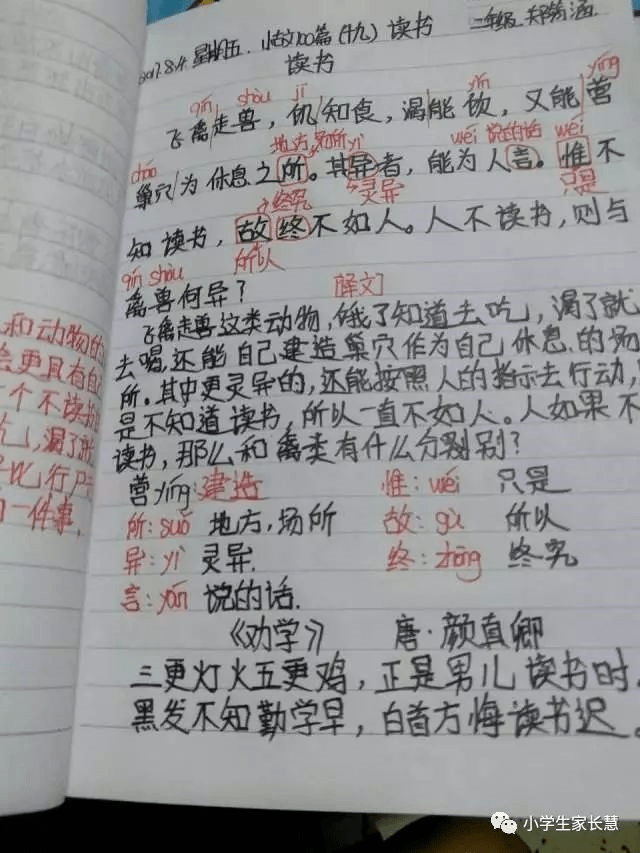 2017.8.4. 星期五. 小散100篇(十九) 读书 二年级
读书
qín shòu jī yǐn yíng
飞禽走兽，饥知食，渴能饮，又能营
cháo 地方,场所 yì wéi 说的话 wéi
巢穴为休息之所。其异者，能为人言。惟不
终究 灵异 只是
知读书，故终不如人。人不读书，则与
qín shòu 所以
禽兽何异？ [译文]
飞禽走兽这类动物，饿了知道去吃，渴了就
去喝,还能自己建造巢穴作为自己休息的场
所。其中更灵异的，还能按照人的指示去行动，
是不知道读书，所以一直不如人。人如果不
读书，那么和禽类有什么分别别？
营yíng:建造 惟：wéi 只是
所：suǒ 地方，场所 故：gù 所以
异：yì 灵异. 终：zhōng 终究
言：yán 说的话.
《劝学》 唐·颜真卿
三更灯火五更鸡，正是男儿读书时.
黑发不知勤学早，白首方悔读书迟。
和动物的
会更具有自
个不读书
吃,渴了就
一件事.
小学生家长慧